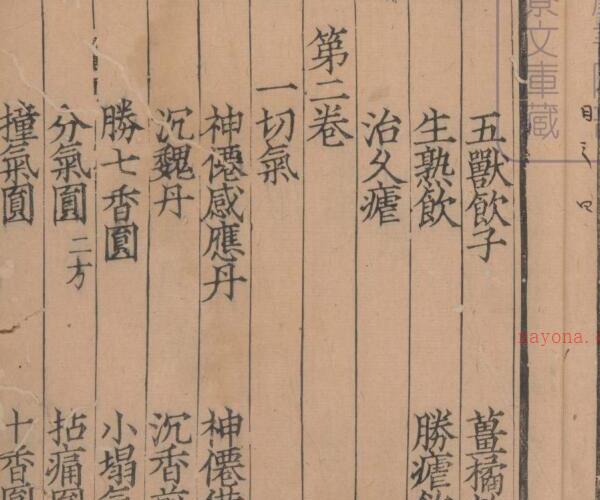 文庫藏
五獸飲子 薑橘
生熟飲 勝瘧飲
治久瘧
第二卷
一切氣
神僊感應丹 神僊
沉魏丹 沉香
勝七香圓 小塌氣
分氣圓 二方 拈痛圓
撞氣圓 十香圓
nayona.